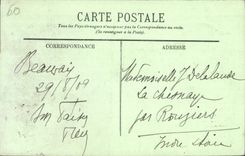 60
CARTE POSTALE
Tous les Pays étrangers n'acceptent pas la Correspondance au recto
(Se renseigner à la Poste).
CORRESPONDANCE
ADRESSE
Beauvais
29/8/09
Mademoiselle J. Delalande
La Chesnaye
par Rouziers
Indre Loire